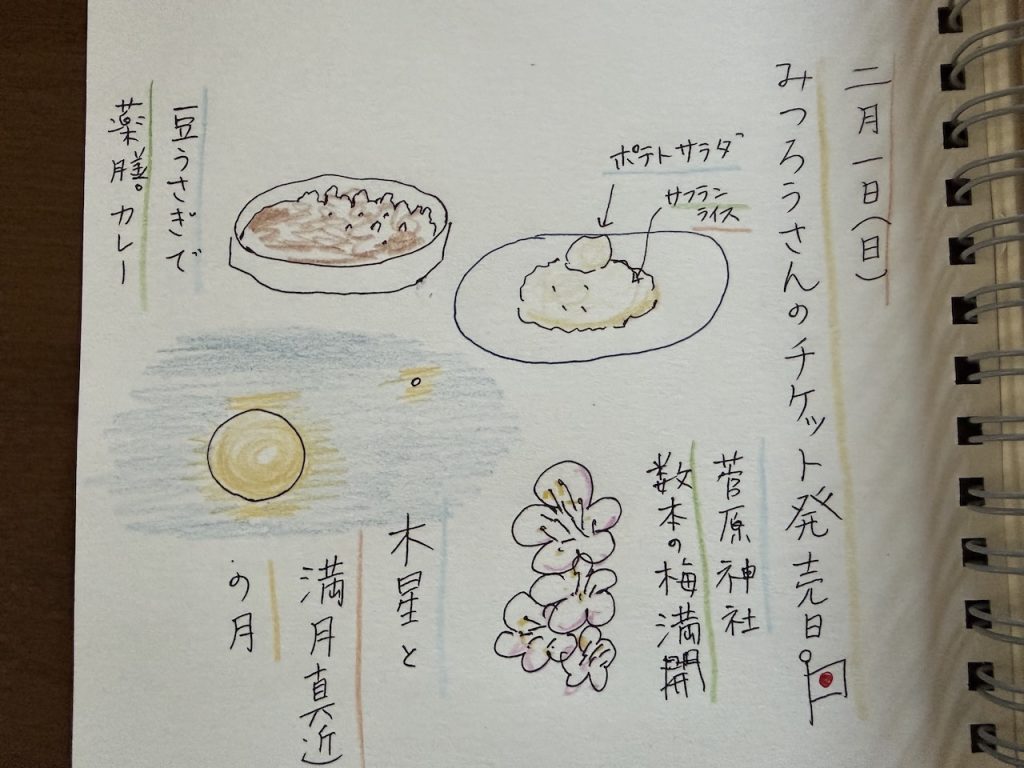 二月一日(日)
みつろうさんのチケット発売日
ポテトサラダ
サフラン
ライス
豆うさぎで
薬膳。カレー
菅原神社
数本の梅満開
木星と
満月真近
の月